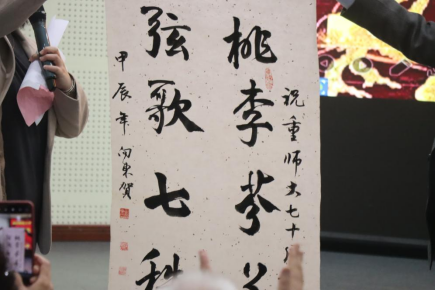 祝重师大七十
桃李芬
弦歌七秩
甲辰年